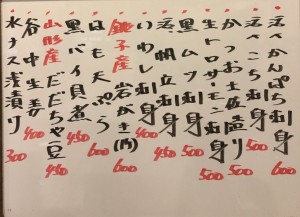 活かんぱち刺身 600
活こち刺身 600
かつお土佐造り 500
生トロサーモン刺身 500
黒ムツ刺身 500
活帆立刺身 450
いわし刺身 400
銚子産岩がき 600
はも天ぷら 600
黒バイ貝煮 450
山形産だだちゃ豆 450
谷中生姜 400
水ナス浅漬り 300